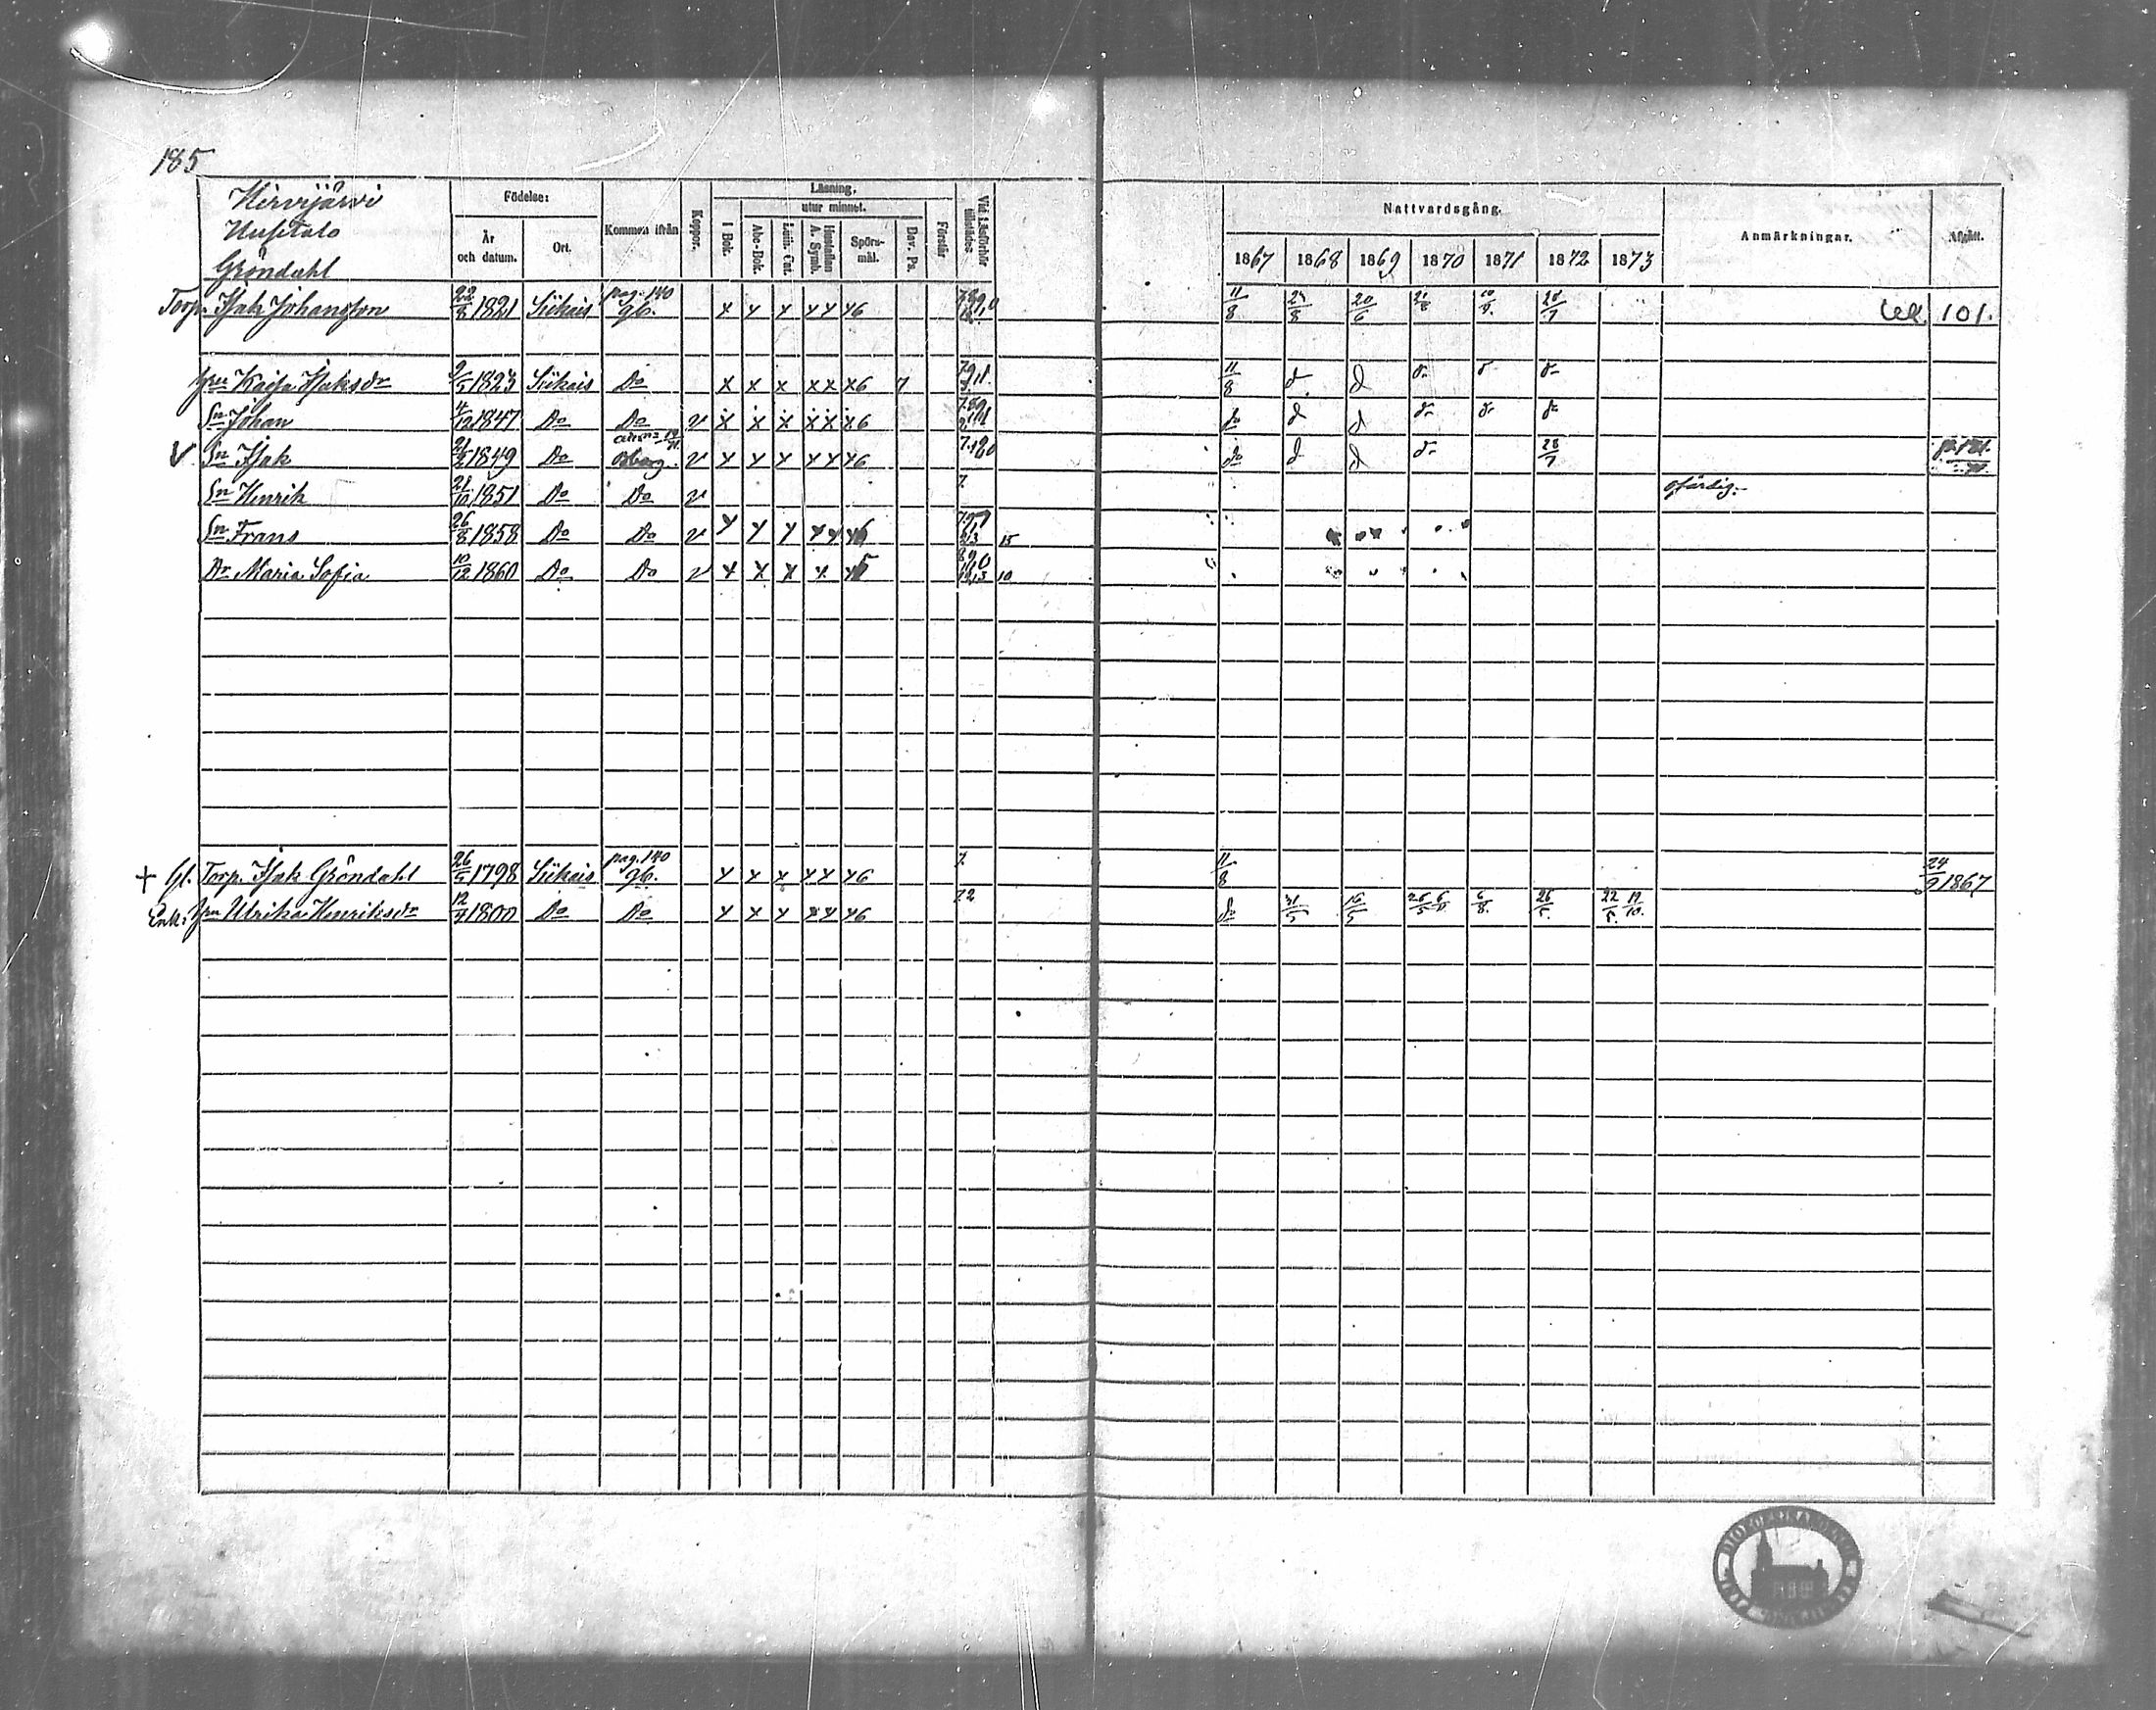 185
Hirvijärvi
Uusitalo
Gröndahl
Födelse:
År och datum.
Ort.
Kommen ifrån
Koppor.
Läsning.
I Bok.
utur minnet.
Abc-Bok.
Luth. Cat.
Hustaflan A. Symb.
Spörs-mål.
Dav. Ps.
Förstår
Vid Läsförhör tillstädes
Nattvardsgång.
1867 1868 1869 1870 1871 1872 1873
Anmärkningar.
Afgått.
Torp. Isak Johansson 22/8 1821 Siikais pag. 140 gb. x x x x x x 6 11/8 20/6 101.
Hu Kaisa Isaksdr 9/5 1823 Siikais Do x x x x x x 6 7 11/8 d d
Sn Johan 4/12 1847 Do Do v x x x x x x 6 do d d
v Sn Isak 1849 Do v x x x x x x 6 do d d 28/7
Sn Henrik 21/10 1851 Do Do v 7. ofärdig.
Sn Frans 26/8 1858 Do Do v x x x x x x 15
Dr Maria Sofia 10/12 1860 Do Do v x x x x x 5 10
+ Gl. Torp. Isak Gröndahl 26/5 1798 Siikais pag. 140 gb. x x x x x x 6 7. 11/8 24/9 1867
Enk. Hu Ulrika Henriksdr 1800 Do Do x x x x x x 6 7.2 do 6/8. 22/5. 19/10.